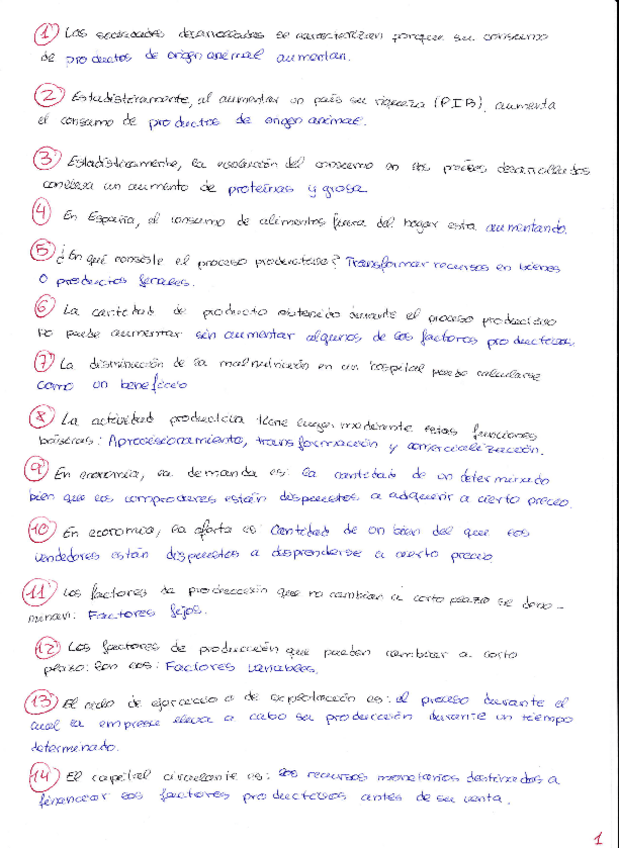 1 Las sociedades desarrolladas se caracterizan porque su consumo
de productos de origen animal aumentan.
2 Estadísticamente, al aumentar un país su riqueza (PIB), aumenta
el consumo de productos de origen animal.
3 Estadísticamente, la evolución del consumo en los países desarrollados
conlleva un aumento de proteínas y grasa
4 En España, el consumo de alimentos fuera del hogar esta aumentando.
5 ¿En qué consiste el proceso productivo? Transformar recursos en bienes
o productos ferales.
6 La cantidad de producto obtenido durante el proceso productivo
no puede aumentar sin aumentar algunos de los factores productivos.
7 La disminución de la malnutrición en un hospital puede calcularse
como un beneficio
8 La actividad productiva tiene lugar mediante estas funciones
básicas: Aprovisionamiento, transformación y comercialización.
9 En economía, la demanda es: la cantidad de un determinado
bien que los compradores están dispuestos a adquirir a cierto precio.
10 En economía, la oferta es: Cantidad de un bien del que los
vendedores están dispuestos a desprenderse a cierto precio.
11 Los factores de producción que no cambian a corto plazo se deno-
minan: Factores fijos.
12 Los factores de producción que pueden cambiar a corto
plazo: son los: Factores variables.
13 El ciclo de ejercicio o de explotación es: el proceso durante el
cual la empresa lleva a cabo su producción durante un tiempo
determinado.
14 El capital circulante es: los recursos monetarios destinados a
financiar los factores productivos antes de su venta.
1